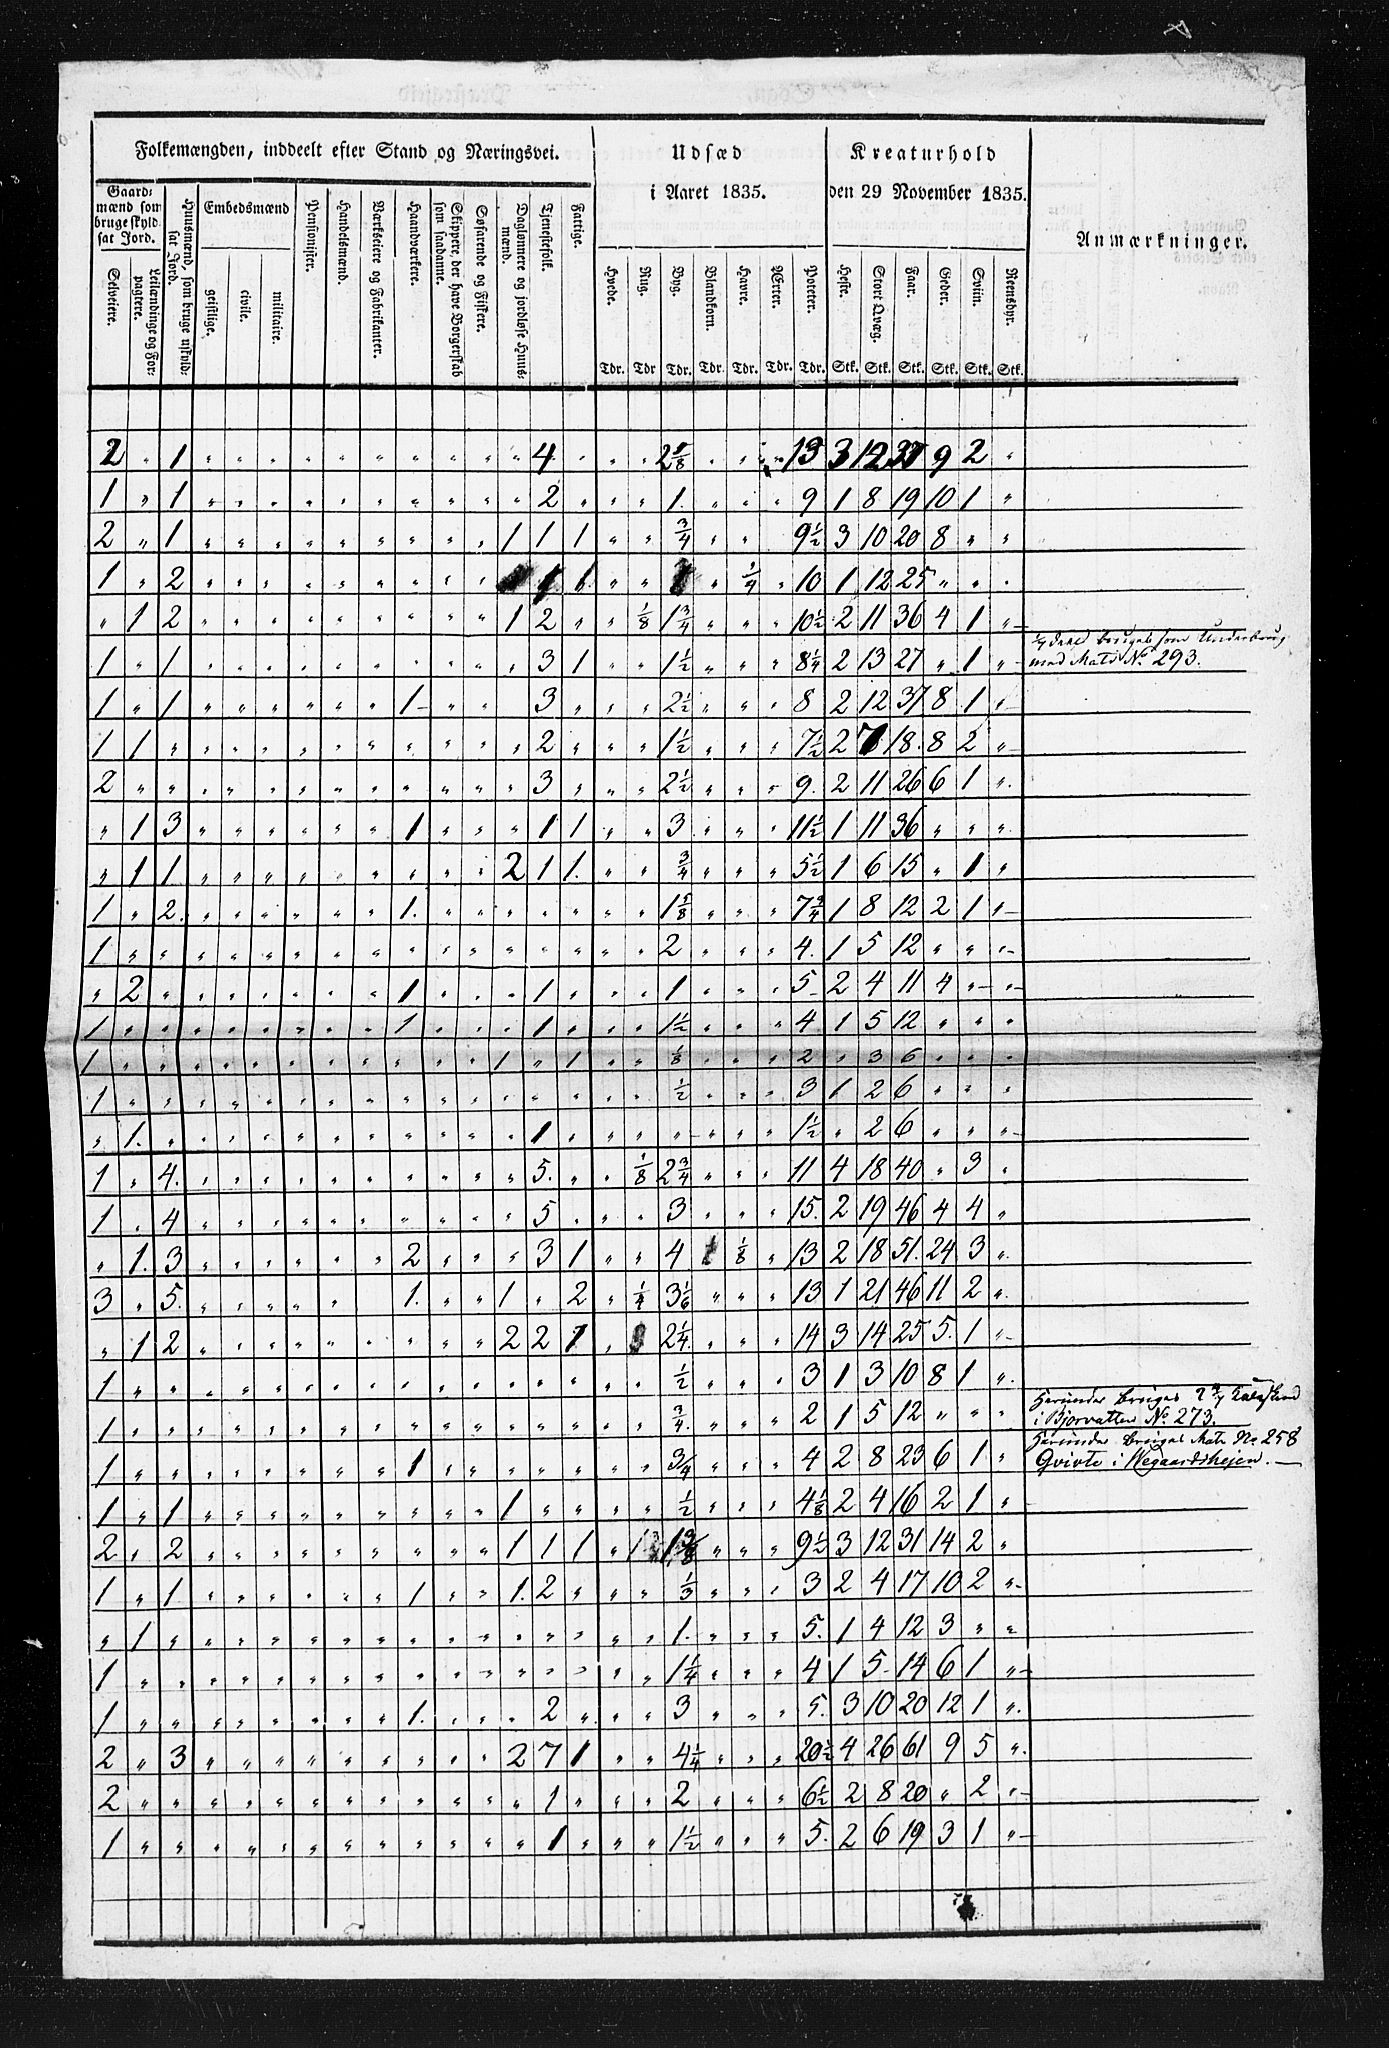 Folkemængden, inddeelt efter Stand og Næringsvei. Udsæd Kreaturhold
i Aaret 1835. den 29 November 1835. Anmærkninger.
Gaardmænd som bruge skyldsat Jord. Huusmænd, som bruge uskyldsat Jord. Embedsmænd Pensionister. Handelsmænd. Værkseiere og Fabrikanter. Haandværkere. Skippere, der have Borgerskab som saadanne. Søfarende og Fiskere. Dagslønnere og jordløse Huusmænd. Tjenestefolk. Fattige.
Selveiere. Leilændinge og Forpagtere. geistlige. civile. militaire. Hvede. Rug. Byg. Blandkorn. Havre. Ærter. Poteter. Heste. Stort Qvæg. Faar. Geder. Sviin. Reensdyr.
Tdr. Tdr Tdr. Tdr. Tdr. Tdr. Tdr. Stk. Stk. Stk. Stk. Stk. Stk.
2 " 1 " " " " " " " " " " 4 " " " " " " 13 3 12 9 2 "
1 " 1 " " " " " " " " " " 2 " " " 1. " " " 9 1 8 19 10 1 "
2 " 1 " " " " " " " " " 1 1 1 " " 3/4 " " 9 1/2 3 10 20 8 " "
1 " 2 " " " " " " " " " 1 1. " " " 1/4 " 10 1 12 25 " " "
" 1 2 " " " " " " " " " 1 2 " " 1/8 1 3/4 " " " 10 1/2 2 11 36 4 1 "
1 " 1 " " " " " " " " " " 3 1 " " 1 1/2 " " " 8 1/4 2 13 27 " 1 " bruges som Underbrug
med Matr No 293.
1 " 1 " " " " " " 1 " " 3 " " " 2 1/2 " " " 8 2 12 37 8 1 "
1 1 " " " " " " " " " " " 2 " " " 1 1/2 " " " 7 1/2 2 7 18. 8 2 "
2 " " " " " " " " " " " " 3 " " " 2 1/2 " " " 9. 2 11 26 6 1 "
" 1 3 " " " " " " 1 " " " 1 1 " " 3 " " " 11 1/2 1 11 36 " " "
" 1 1. " " " " " " " " " 2 1 1. " " 3/4 " " " 5 1/2 1 6 15 " 1 "
1 " 2. " " " " " " 1. " " " " " " " 1 5/8 " " " 7 3/4 1 8 12 2 1 "
1 " " " " " " " " " " " " " " " " 2 " " " 4. 1 5 12 " " "
" 2 " " " " " " " 1 " " " 1 " " " 1 " " " 5 2 4 11 4 " "
1 " " " " " " " " 1 " " " 1 " " " 1 1/2 " " " 4 1 5 12 " " "
1 " " " " " " " " " " " 1 " 1 " " 1/8 " " " 2 " 3 6 " " "
1 " " " " " " " " " " " " " " " " 1/2 " " " 3 1 2 6 " " "
" 1. " " " " " " " " " " " 1 " " " " " " " 1 1/2 " 2 6 " " "
1 " 4. " " " " " " " " " " 5. " " 1/8 2 3/4 " " " 11 4 18 40 " 3 "
1 " 4 " " " " " " " " " " 5 " " " 3 " " " 15. 2 19 46 4 4 "
" 1. 3 " " " " " " 2 " " " 3 1 " " 4 1/8 " 13 2 18 51. 24 3 "
3 " 5. " " " " " 1. " " 1 " 2 " 1/4 3 1/6 " " " 13 1 21 46 11 2 "
" 1 2 " " " " " " " " " 2 2 1 " 2 1/4. " " " 14 3 14 25 5. 1 "
1 " " " " " " " " " " " " " " " " 1/2 " " " 3 1 3 10 8 1 "
1 " " " " " " " " " " " " " " " " 3/4. " " " 2 1 5 12 " " " Herunder bruges
i Bjorvatten No 273.
1 " " " " " " " " 1 " " " " " " " 3/4 " " " 4 2 8 23 6 1 " Herunder bruges Matr No 258
Qvivte i Wegaardshejen.
1 " 1 " " " " " " " " " 1 " " " " 1/2 " " " 4 1/8 2 4 16 2 1 "
2 " 2 " " " " " " " " " 1 1 1 " " " " 9 1/2 3 12 31 14 2 "
1 " 1 " " " " " " 1 " " 1. 2 " " " 1/3 " " " 3 2 4 17 10 2 "
" 1 " " " " " " " " " " " " " " " 1. " " " 5. 1 4 12 3 " "
1 " " " " " " " " " " " " " " " " 1 1/4 " " " 4 1 5 14 6 1 "
1 " " " " " " " " 1. " " " 2 " " " 3 " " " 5. 3 10 20 12 1 "
2 " 3 " " " " " " " " " 2 7 1 " " 4 1/4 " " " 20 1/2 4 26 61 9 5 "
2 " " " " " " " " " " " " 1 " " " 2 " " " 6 1/2 2 8 20 " 2 "
1 " " " " " " " " " " " " 1 " " " 1 1/2 " " " 5. 2 6 19 3 1 "